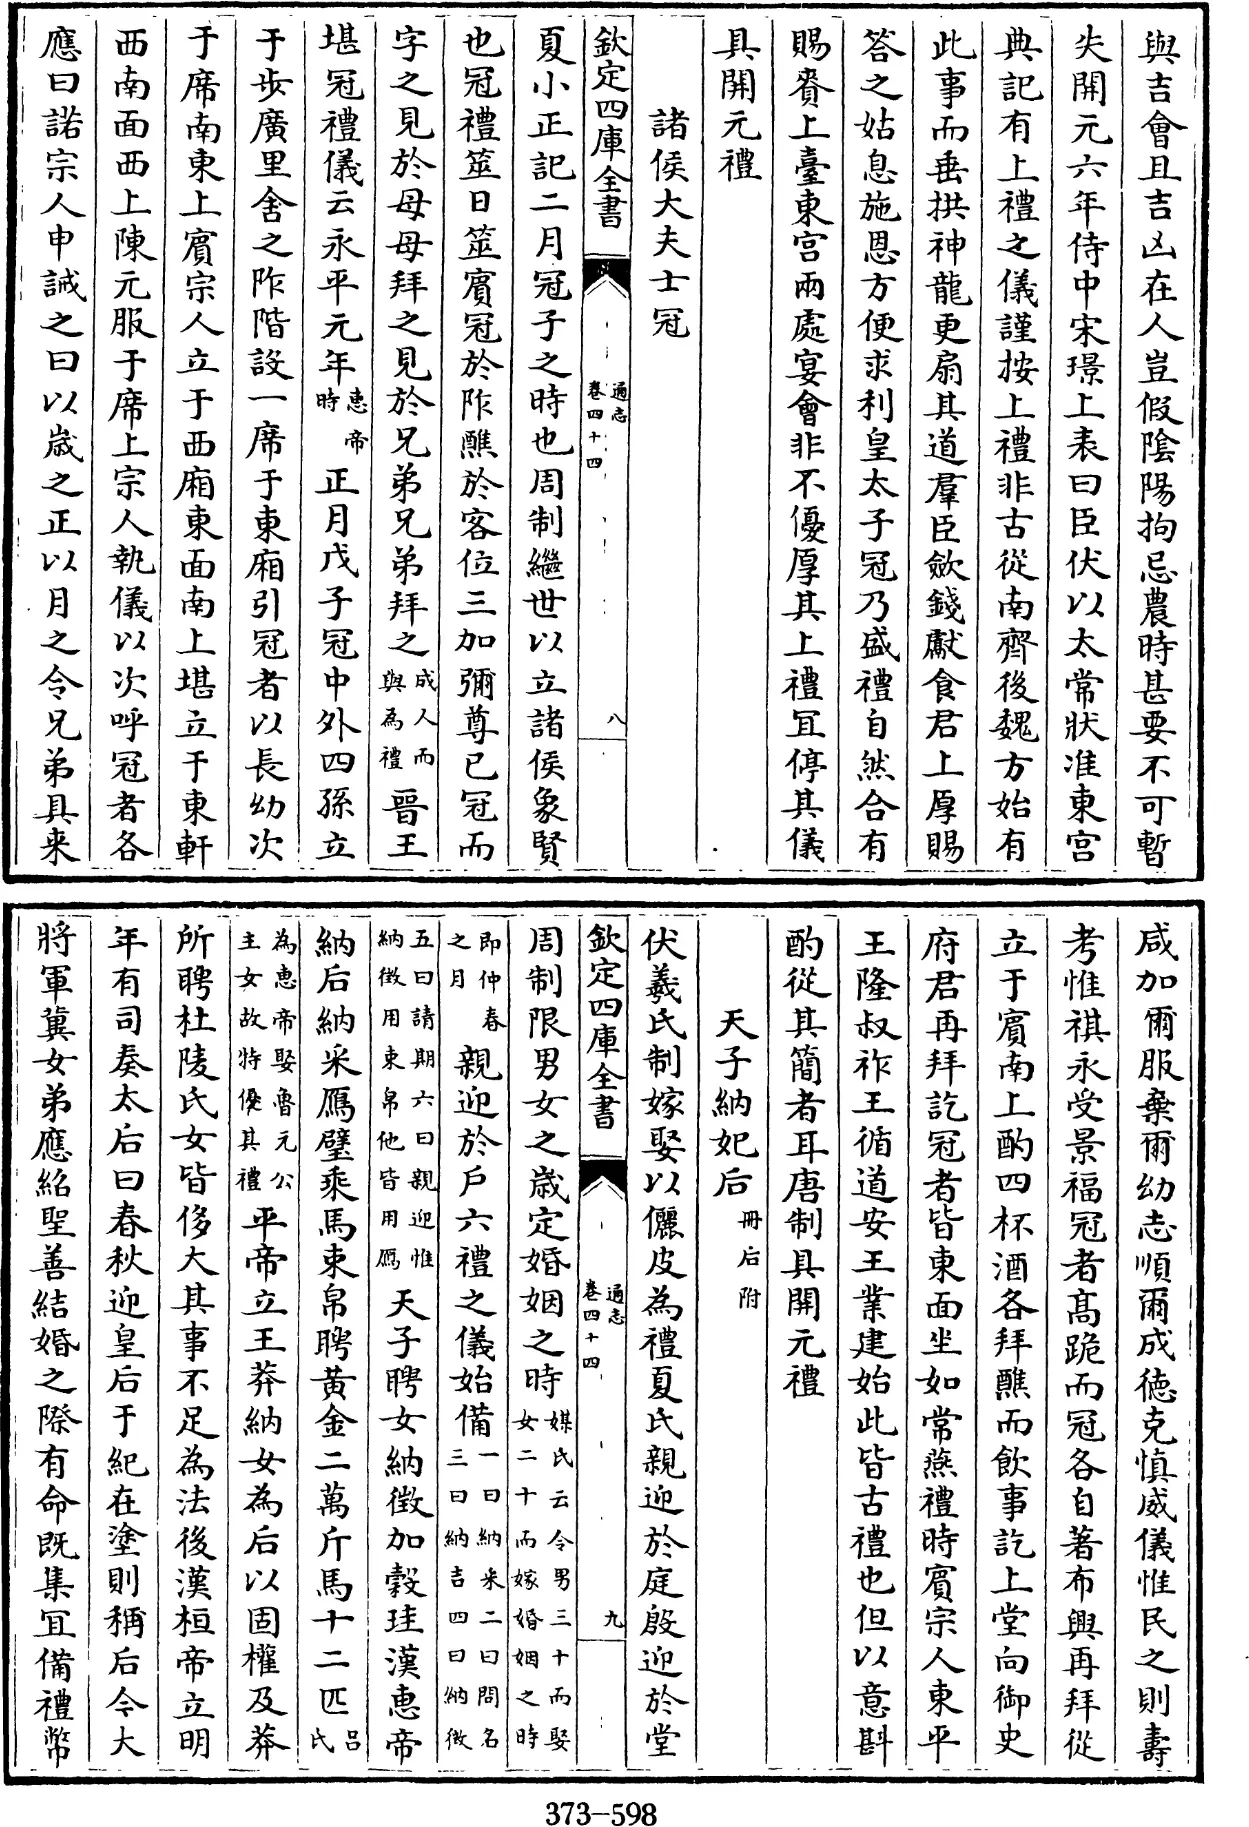 與吉會且吉凶在人豈假陰陽拘忌農時甚要不可暫
失開元六年侍中宋璟上表曰臣伏以太常狀准東宫
典記有上禮之儀謹按上禮非古從南齊後魏方始有
此事而垂拱神龍更扇其道羣臣歛錢獻食君上厚賜
答之姑息施恩方便求利皇太子冠乃盛禮自然合有
賜賚上臺東宫兩處宴會非不優厚其上禮宜停其儀
具開元禮
諸侯大夫士冠
欽定四庫全書
通志
卷四十四
八
夏小正記二月冠子之時也周制繼世以立諸侯象賢
也冠禮筮日筮賓冠於阼醮於客位三加彌尊已冠而
字之見於母母拜之見於兄弟兄弟拜之成人而與為禮晉王
堪冠禮儀云永平元年惠帝時正月戊子冠中外四孫立
于步廣里舍之阼階設一席于東廂引冠者以長幼次
于席南東上賓宗人立于西廂東面南上堪立于東軒
西南面西上陳元服于席上宗人執儀以次呼冠者各
應曰諾宗人申誡之曰以歲之正以月之令兄弟具来
咸加爾服棄爾幼志順爾成德克慎威儀惟民之則壽
考惟祺永受景福冠者高跪而冠各自著布興再拜從
立于賓南上酌四杯酒各拜醮而飲事訖上堂向御史
府君再拜訖冠者皆東面坐如常燕禮時賓宗人東平
王隆叔祚王循道安王業建始此皆古禮也但以意斟
酌從其簡者耳唐制具開元禮
天子納妃后冊后附
伏羲氏制嫁娶以儷皮為禮夏氏親迎於庭殷迎於堂
欽定四庫全書
通志
卷四十四
九
周制限男女之歲定婚姻之時媒氏云令男三十而娶女二十而嫁婚姻之時
即仲春之月親迎於戶六禮之儀始備一曰納采二曰問名三曰納吉四曰納徵
五曰請期六曰親迎惟納徵用束帛他皆用鴈天子聘女納徵加穀珪漢惠帝
納后納采鴈璧乘馬束帛聘黄金二萬斤馬十二匹吕氏
為惠帝娶魯元公主女故特優其禮平帝立王莽納女為后以固權及莽
所聘杜陵氏女皆侈大其事不足為法後漢桓帝立明
年有司奏太后曰春秋迎皇后于紀在塗則稱后今大
將軍冀女弟應紹聖善結婚之際有命既集宜備禮幣
373-598